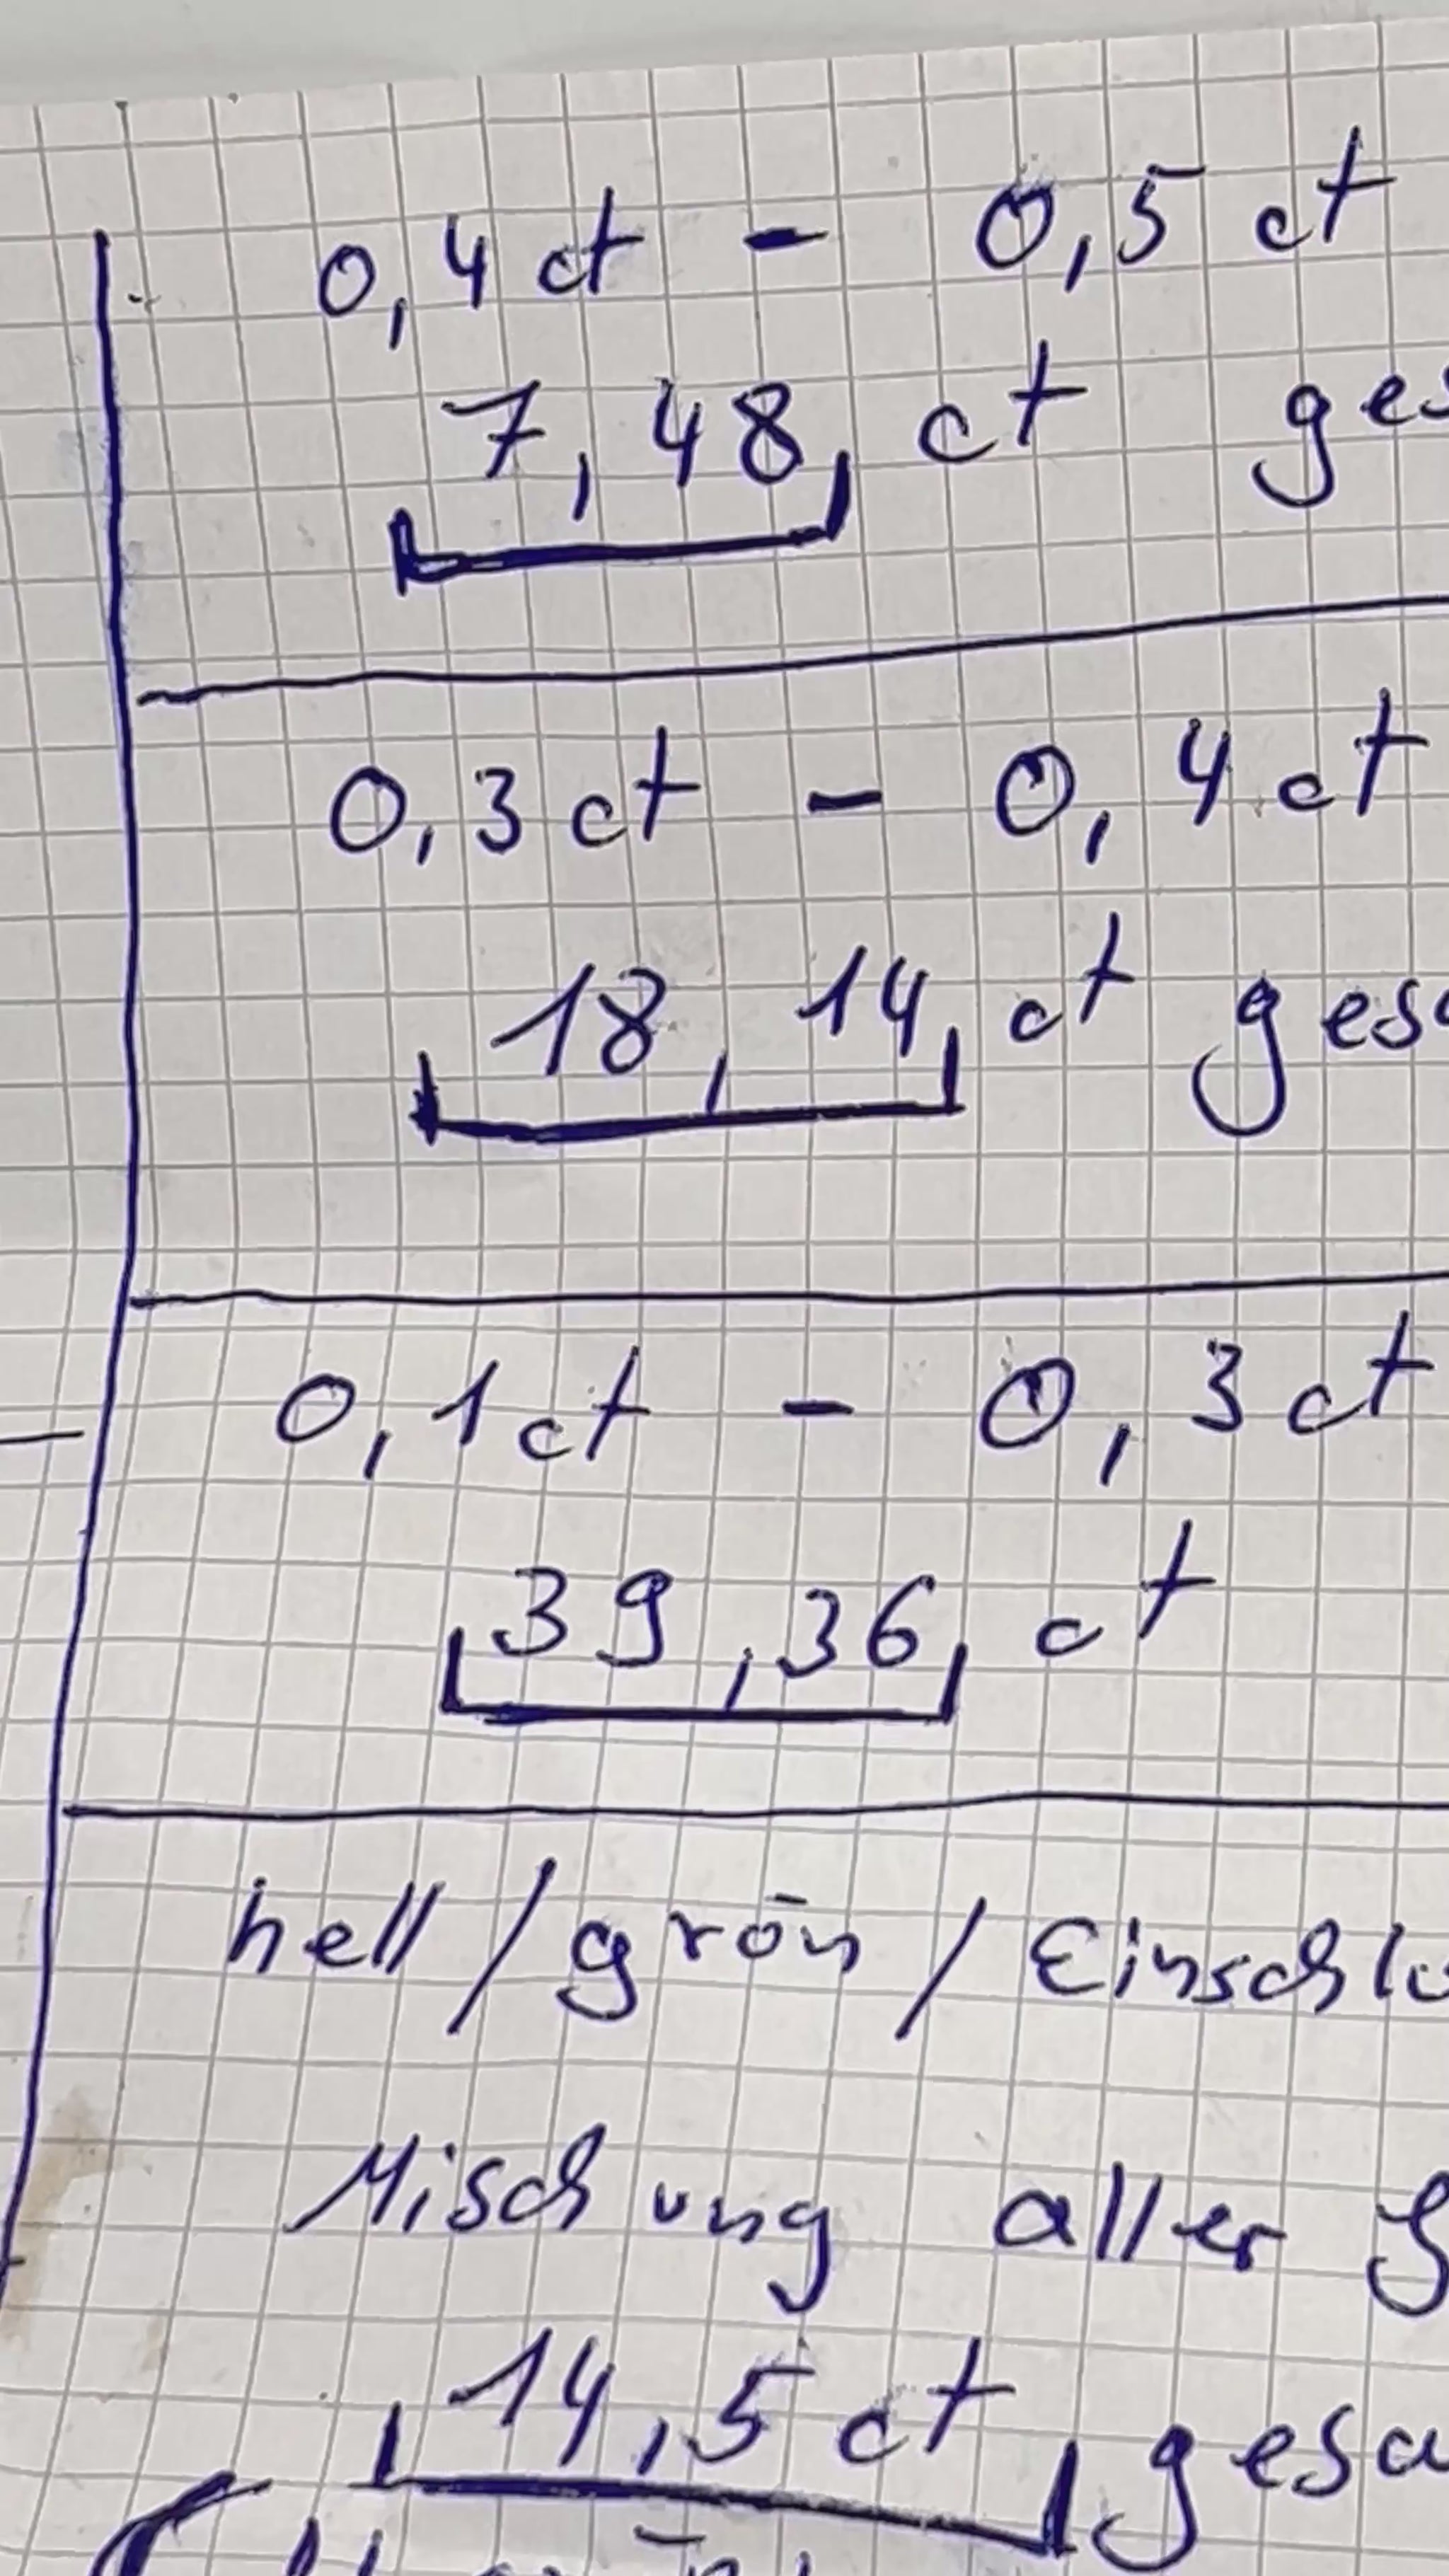 0,4 ct - 0,5 ct
7,48 ct ges
0,3 ct - 0,4 ct
18,14 ct ges
0,1 ct - 0,3 ct
39,36 ct
hell / grün / Einschlu
Mischung aller G
14,5 ct gesa